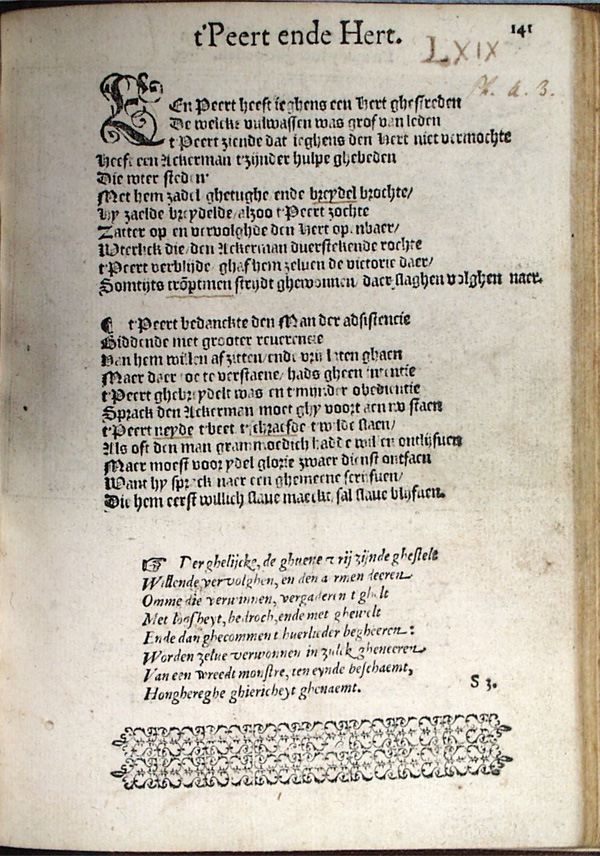 t'Peert ende Hert. 141
LXIX
Ph. a. 3.
EEn Peert heeft ieghens een Hert ghestreden
De welcke vulwassen was grof van leden
t'Peert ziende dat ieghens den Hert niet vermochte
Heeft een Ackerman t'zijnder hulpe ghebeden
Die roter steden
Met hem zadel ghetughe ende breydel brochte/
Hy zaelde breydelde/alzoo t'Peert zochte
Zatter op en vervolghde den Hert openbaer/
Uterlick die den Ackerman duerstekende rochte
t'Peert verblijde/ghaf hem zelven de victorie daer/
Somtijts crõptmen strijdt ghewonnen/daer slaghen volghen naer.
¶ t'Peert bedanckte den Man der adsistencie
Biddende met grooter reverencie
Van hem willen af zitten/ende vry laten ghaen
Maer daer toe te verstaene/hads gheen intentie
t'Peert ghebreydelt was en t'mynder obedientie
Sprack den Ackerman moet ghy voort aen nv staen
t'Peert neyde t'beet t'schraefde t'wilde slaen/
Als oft den man grammoedich hadde willen ontlijfven
Maer moest voor ydel glorie zwaer dienst ontfaen
Want hy sprack naer een ghemeene scrijfven/
Die hem eerst willich slave maeckt/sal slave blyfven.
☞ Derghelijcke, de ghuene vrij zijnde ghestelt
Willende vervolghen, en den armen deeren
Omme die verwinnen, vergaderen t'ghelt
Met boosheyt, bedroch, ende met ghewelt
Ende dan ghecomment huerlieder begheeren:
Worden zelve verwonnen in zulck gheneeren
Van een wreedt monstre, ten eynde beschaemt,
Honghereghe ghiericheyt ghenaemt.
S 3.